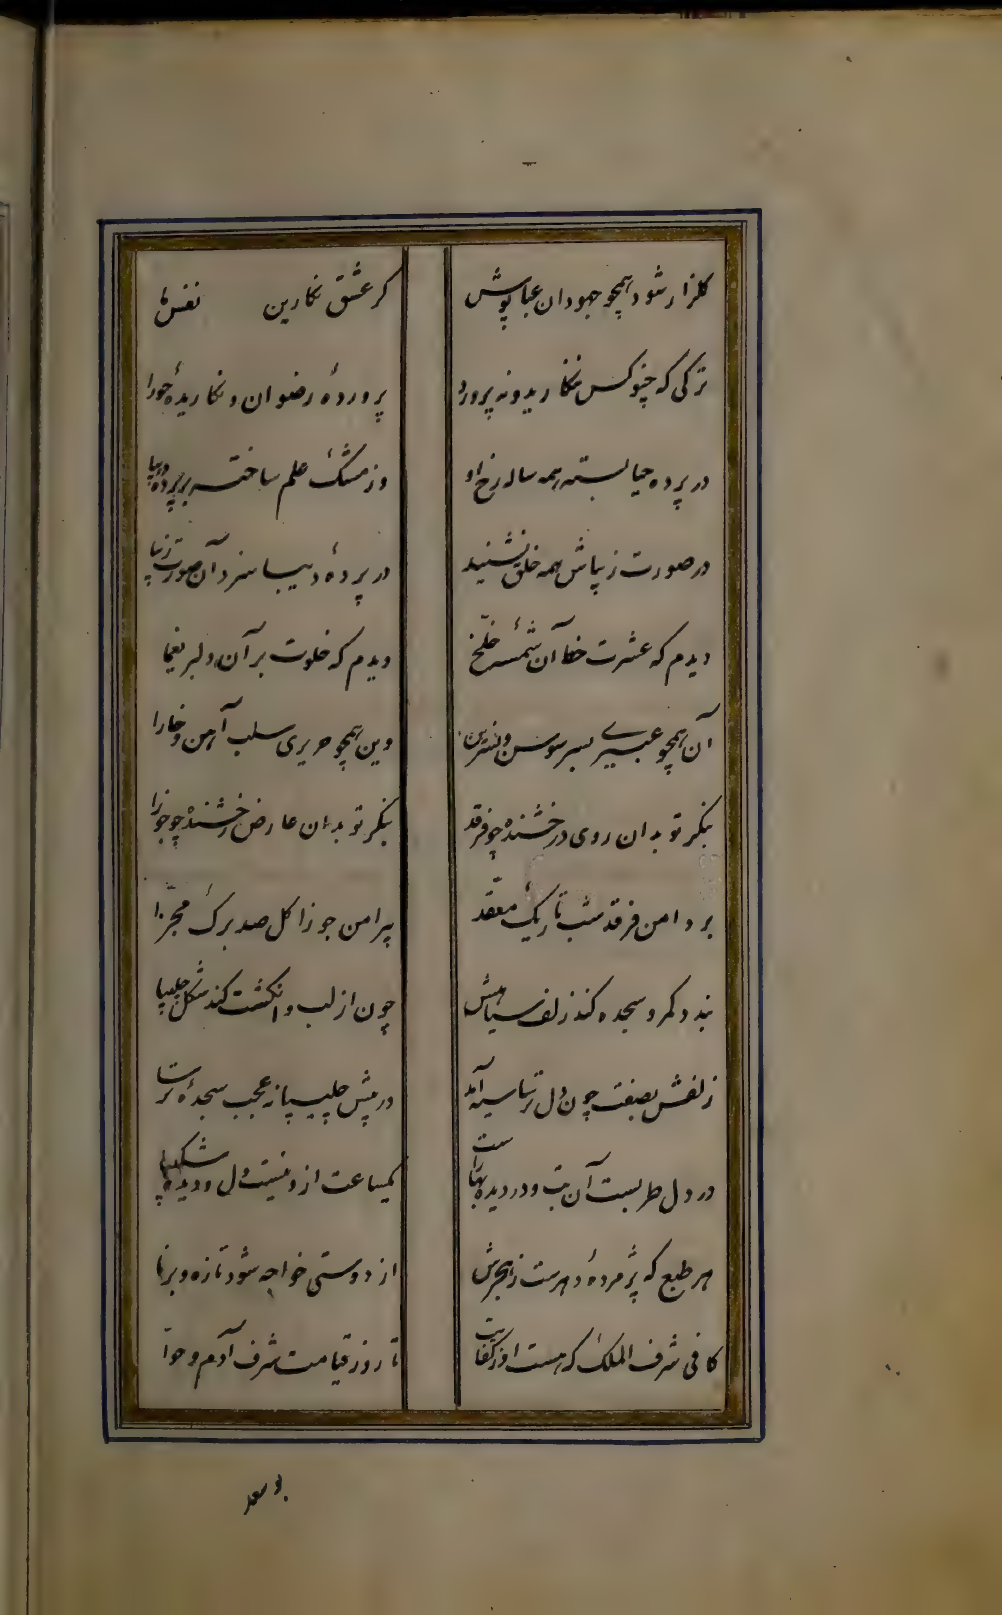 کلزار شود همچو جهودان عبا پوش
کر عشق نکارین نفس ما
ترکی که چنوکس ننکارید و نه پرورد
پروردهٔ رضوان و نکاریدهٔ حورا
در پرده حیا بسته همه ساله رخ او
وز مشک علم ساخته بر پرده دیبا
در صورت زیباش همه خلق نشنید
در پردهٔ دیبا سزد آن صورت زیبا
دیدم که عشرت خطا آن شمسهٔ خلّخ
دیدم که خلوت بر آن دلبر یغما
آن همچو عبیری بسر سوسن و نسرین
وین همچو حریری سلب آهن و خارا
بنکر تو بدان روی درخشنده چو فرقد
بنکر تو بدان عارض رخشنده چو جوزا
بر دامن فرقد شب تاریک معقّد
پیرامن جوزا کل صد برک مجزّا
بندد کمر و سجده کند زلف سیاهش
چون از لب و انکشت کند شکل چلیپا
زلفش بصفت چون دل ترسا سیه آمد
در پیش چلیپا نه عجب سجدهٔ ترسا
در دل طربست آن بت و در دیده بهارست
یکساعت ازو نیست دل و دیده شکیبا
هر طبع که پژمردهٔ دهرست ز هجرش
از دوستی خواجه شود تازه و برنا
کافی شرف الملک که هست او ز کفایت
تا روز قیامت شرف آدم و حوّا
بو سعد